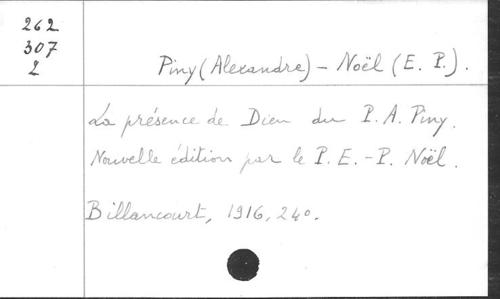 262
307
2
Piny (Alexandre) - Noël (E. P.).
La présence de Dieu du P. A. Piny.
Nouvelle édition par le P. E.-P. Noël.
Billancourt, 1916, 24o.